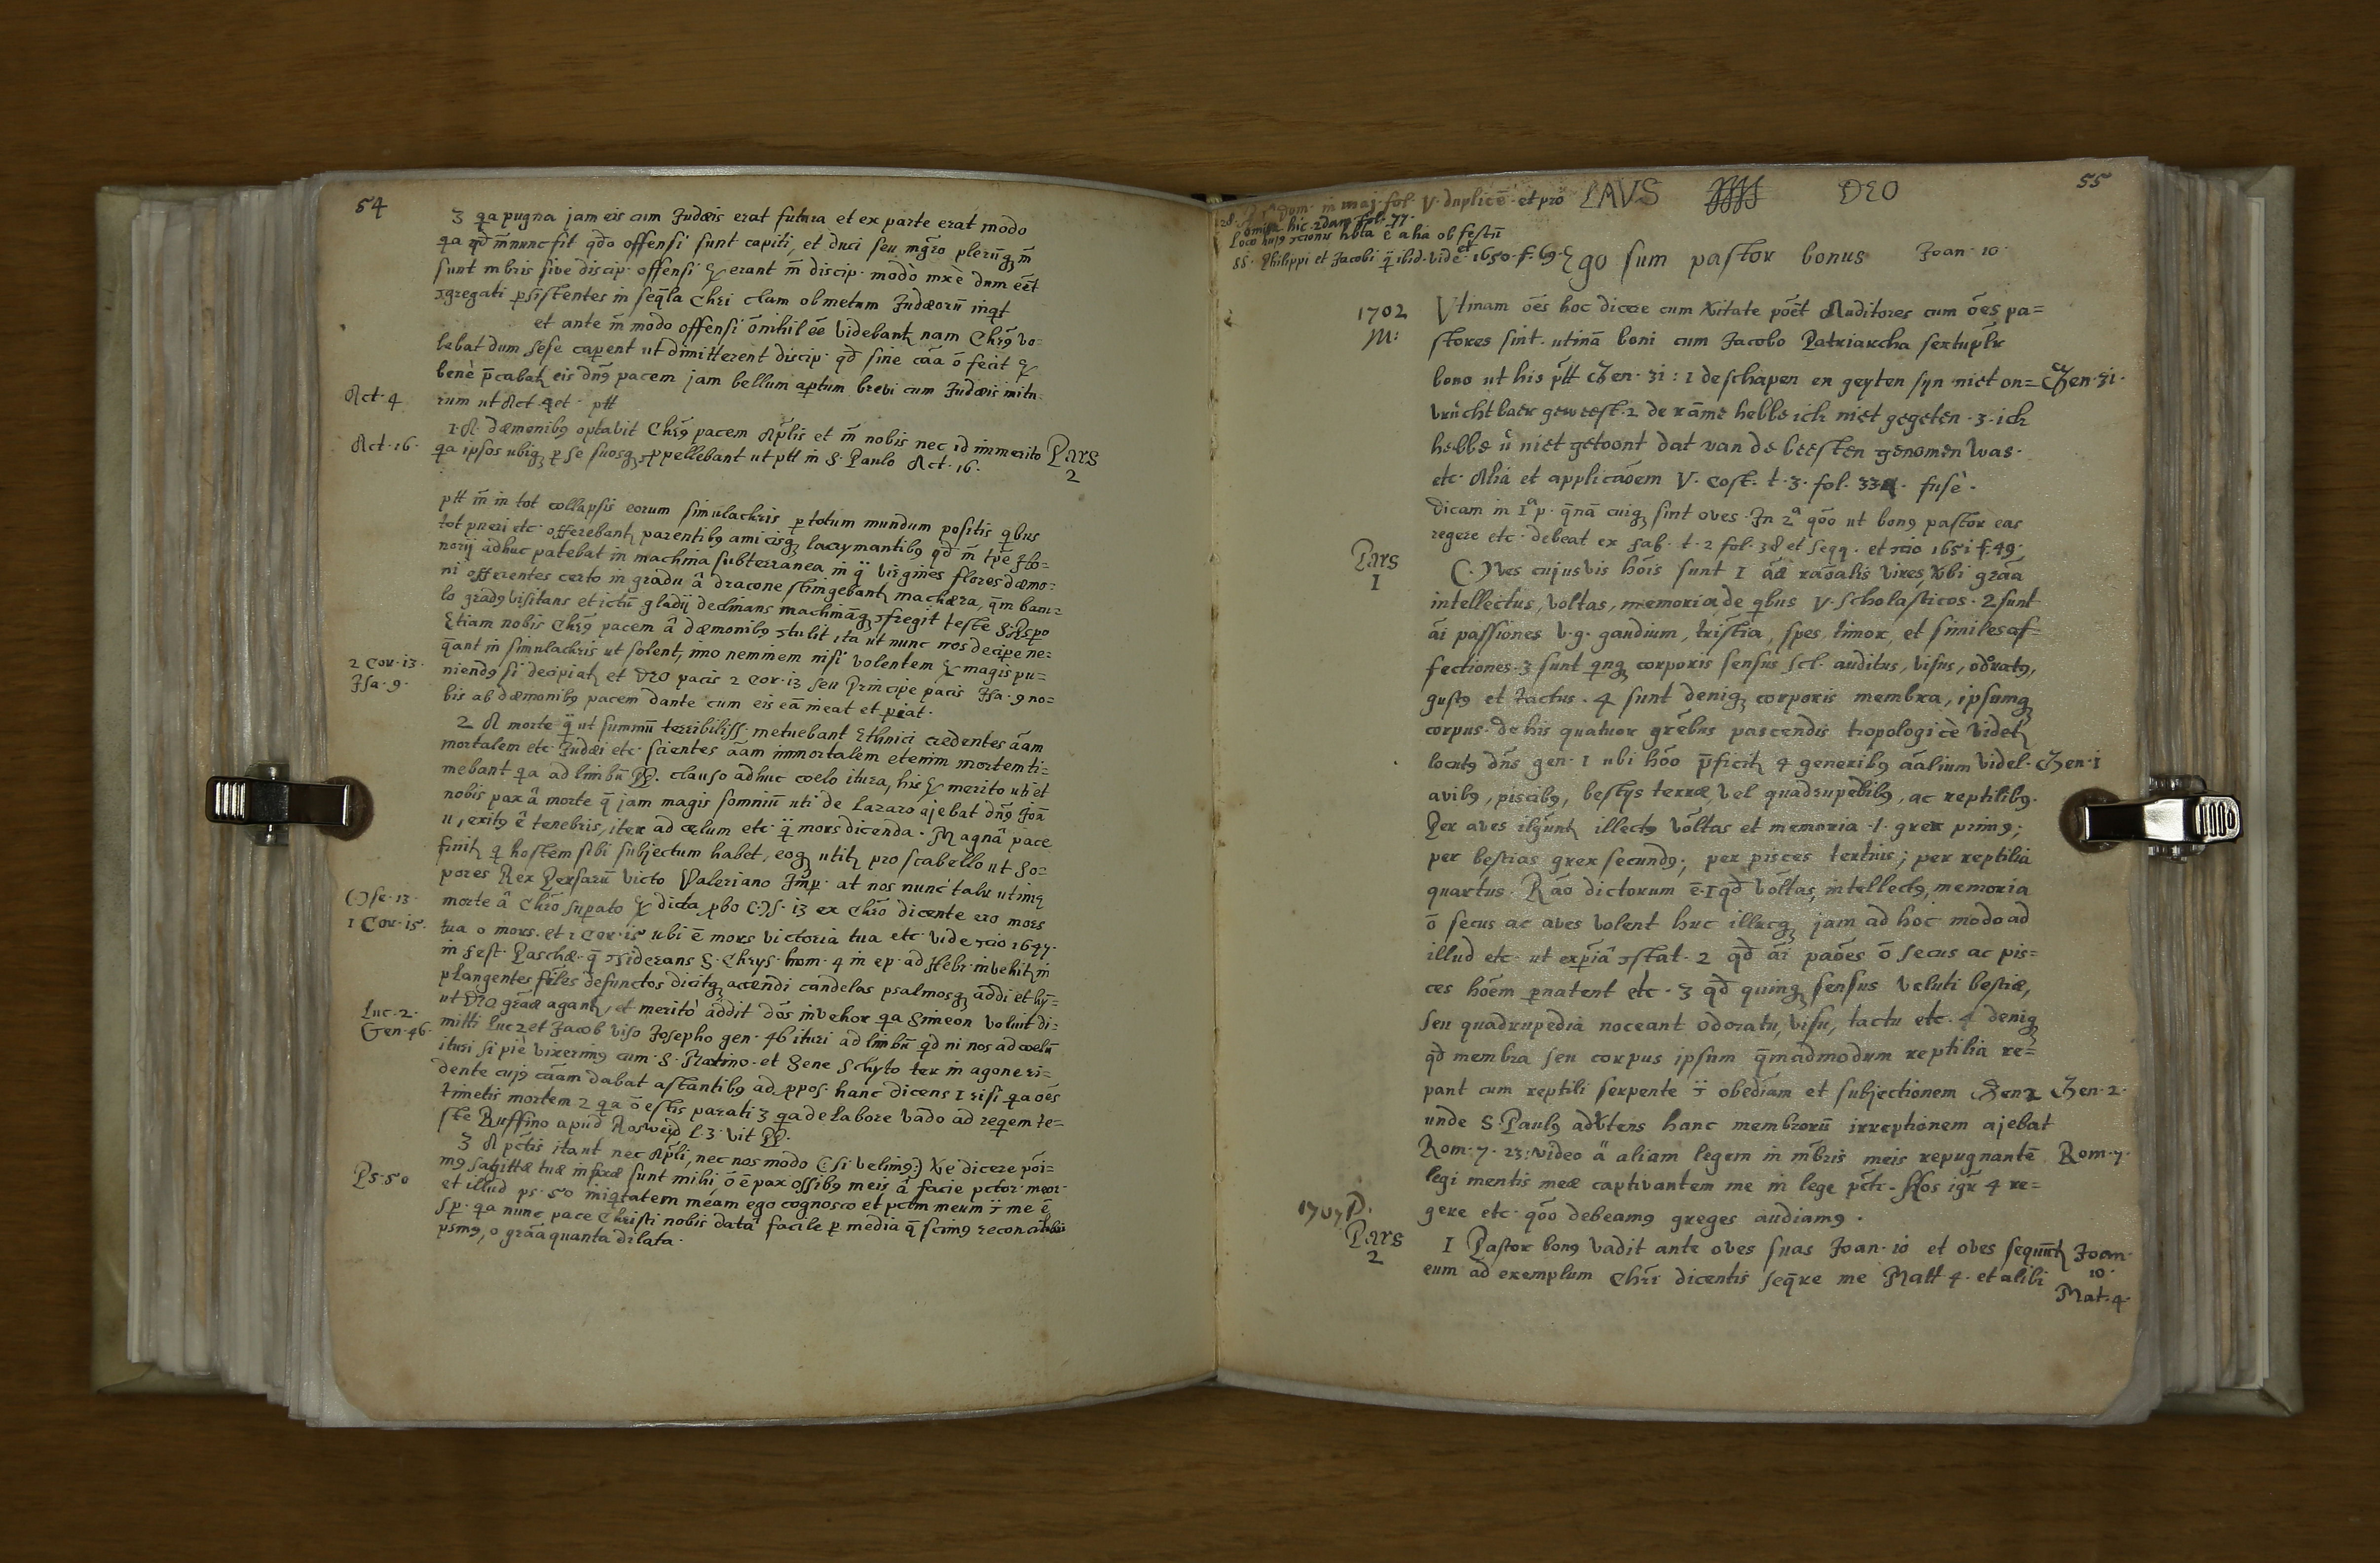 54
3 qa pugna jam eis cum Judæis erat futura et ex parte erat modo
qa qd m̄ nunc fit qdo offensi sunt capiti, et duci seu mgro plerūq m̄
sunt mbris sive discip· offensi & erant m̄ discip· modò mxè dum eēt
gregati psistentes in seqla Chri clam ob metum Judæorū inqt
et ante m̄ modo offensi ō nihil ēē videbant nam Chrs vo=
lebat dum sese caperent ut dimitterent discip· qd sine cāa ō fecit &
benè p̄cabat eis dns pacem jam bellum aptum brevi cum Judæis initu=
Act· 4
rum ut Act 4 et· ptt
1· A dæmonibs optavit Chrs pacem Aplis et m̄ nobis nec id immerito
Pars
2
Act· 16·
qa ipsos ubiq p se suosq ppellebant ut ptt in S· Paulo Act· 16·
ptt m̄ in tot collapsis eorum simulachris p totum mundum positis qbus
tot pueri etc· offerebant parentibs amicisq lacrymantibs qd m̄ tpe Ho=
norij adhuc patebat in machina subterranea in q virgines flores dæmo=
ni offerentes certo in gradu â dracone stringebant machæra, q̄m
lo grads visitans et ictū gladij declinans machināq fregit teste S· Pspo
Etiam nobis Chrs pacem â dæmonibs tulit ita ut nunc nos decipe ne=
q̄ant in simulachris ut solent, imo neminem nisi volentem & magis pu=
2 Cor· 13·
niends si decipiat et DEO pacis 2 Cor· 13 seu Principe pacis Isa· 9 no=
Isa· 9·
bis ab dæmonibs pacem dante cum eis eā ineat et
2 A morte q ut summū terribiliss· metuebant Ethnici credentes āam
mortalem etc· Judæi etc· scientes āam immortalem etenim mortem ti=
mebant qa ad limbū PP· clauso adhuc coelo itura, his & merito ut et
nobis pax â morte q̄ jam magis somniū uti de Lazaro ajebat dns Joā
11, exits ē tenebris, iter ad cælum etc· q mors dicenda· Magnâ pace
finit q hostem sibi subjectum habet, eoq utit pro scabello ut So=
pores Rex Persarū victo Valeriano Imp· at nos nunc tali utimr
Ose· 13·
morte â Chro supato & dicta pbo Os· 13 ex Chro dicente ero mors
1 Cor· 15·
tua o mors· et 1 Cor· 15 ubi ē mors victoria tua etc· vide cio 1647·
in fest· Paschæ· q̄ siderans S· Chrys· hom· 4 in ep· ad Hebr· invehit in
plangentes files defunctos dicitq accendi candelas psalmosq addi et hy=
Luc· 2·
ut DEO grāæ agant, et meritò addit dos invehor qa Simeon voluit di=
Gen· 46·
mitti Luc 2 et Jacob viso Josepho gen· 46 ituri ad limbū qd ni nos ad coelū
ituri si piè vixerims cum· S· Martino· et Sene Schyto ter in agone ri=
dente cujs cāam dabat astantibs ad ppos· hanc dicens 1 risi qa oēs
timetis mortem 2 qa ō estis parati 3 qa de labore vado ad reqem te=
ste Ruffino apud Rosweyd l· 3· vit PP·
3 A pctis itant nec Apli, nec nos modo (: si velims :) Xe dicere poi=
Ps· 50
ms sagittæ tuæ infixæ sunt mihi ō ē pax ossibs meis â facie pctor· meor·
et illud ps· 50 iniqtatem meam ego cognosco et pctm meum me ē
sp· qa nunc pace Christi nobis datâ facile p media q̄ scims reconciliabi
psms, o grāa quanta dilata·
55
LAVS DEO
dom· in maj· fol· V· duplicē et pro
omissa hic 2dam fol· 77·
Loco hujs cionis hbta ē alia ob festū
SS· Philippi et Jacobi q ibid· vide et 1650· f· 69·
Ego sum pastor bonus Joan· 10·
1702
M:
Vtinam oēs hoc dicere cum Xitate poēt Auditores cum oēs pa=
stores sint· utinā boni cum Jacobo Patriarcha sextuplr
bono ut his ptt Gen· 31: 1 de schapen en geyten syn niet on=
Gen· 31·
vrúchtbaer geweest· 2 de rāme hebbe ich niet gegeten· 3· ich
hebbe ú niet getoont dat van de beesten genomen was·
etc· Alia et applicaōem V· Cost· t· 3· fol· 334· fusè·
dicam in 1ª p· q̄nā cuiq sint oves· In 2ª qōo ut bons pastor eas
regere etc· debeat ex Fab· t· 2 fol· 38 et seqq· et cio 1651 f· 49·
Pars
1
Oves cujusvis hōis sunt 1 āæ raōalis vires, Xbi grāa
intellectus, voltas, memoria, de qbus V· Scholasticos· 2 sunt
āi passiones v·g· gaudium, tristia, spes, timor, et similes af=
fectiones· 3 sunt qnq corporis sensus scl· auditus, visus, odorats,
gusts et tactus· 4 sunt deniq corporis membra, ipsumq
corpus· de his quatuor grēbus pascendis tropologicè videt
locuts dns gen· 1 ubi hōo p̄ficit 4 generibs āalium videl·
Gen· 1
avibs, piscibs, bestijs terræ, vel quadrupedibs, ac reptilibs·
Per aves ilgunt illects voltas et memoria ·1· grex prims;
per bestias grex secunds; per pisces tertius; per reptilia
quartus· Rāo dictorum ē· 1 qd voltas, intellects, memoria
ō secus ac aves volent huc illucq jam ad hoc modo ad
illud etc· ut expiâ stat· 2 qd āi paōes ō secus ac pis=
ces hōem pnatent etc· 3 qd quinq sensus veluti bestiæ,
seu quadrupedia noceant odoratu, visu, tactu etc· 4 deniq
qd membra seu corpus ipsum q̄madmodum reptilia re=
pant cum reptili serpente obediam et subjectionem Gen 2
Gen· 2·
unde S· Pauls adVtens hanc membrorū irreptionem ajebat
Rom· 7· 23: video ä aliam legem in mbris meis repugnantē
Rom· 7·
legi mentis meæ captivantem me in lege pcti· Hos igr 4 re=
gere etc· qōo debeams greges audiams·
1707 P.
Pars
2
1 Pastor bons vadit ante oves suas Joan· 10 et oves sequunt
Joan·
10·
eum ad exemplum Chri dicentis seq̄re me Matt 4· et alibi
Mat· 4·